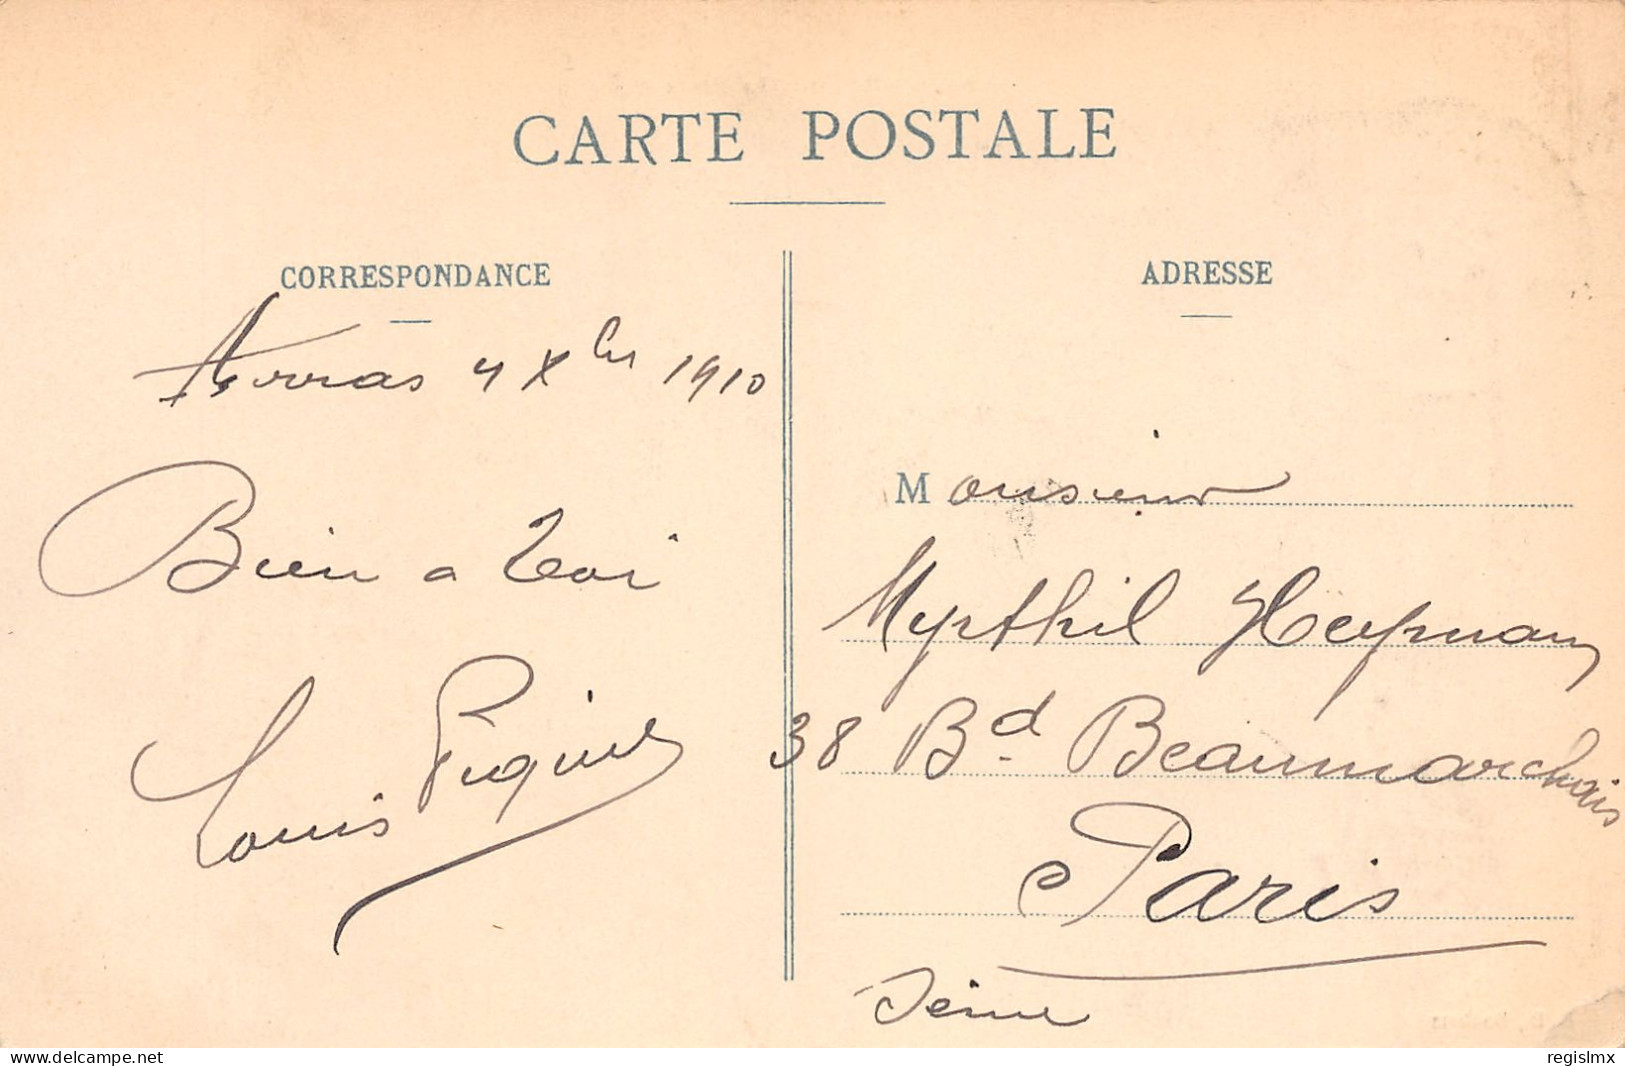 CARTE POSTALE
CORRESPONDANCE
Arras 4 Xbre 1910
Bien a toi
Louis
ADRESSE
Monsieur
Myrthil Heymann
38 Bd Beaumarchais
Paris
Seine
delcampe.net
regislmx